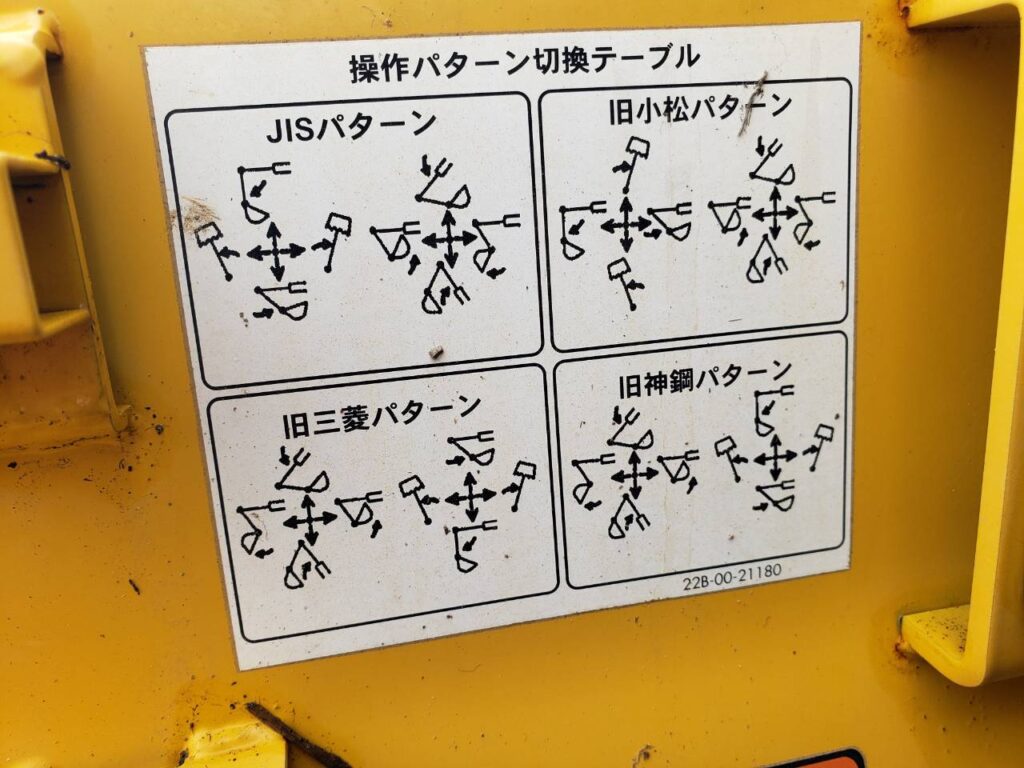 操作パターン切換テーブル
JISパターン
旧小松パターン
旧三菱パターン
旧神鋼パターン
22B-00-21180